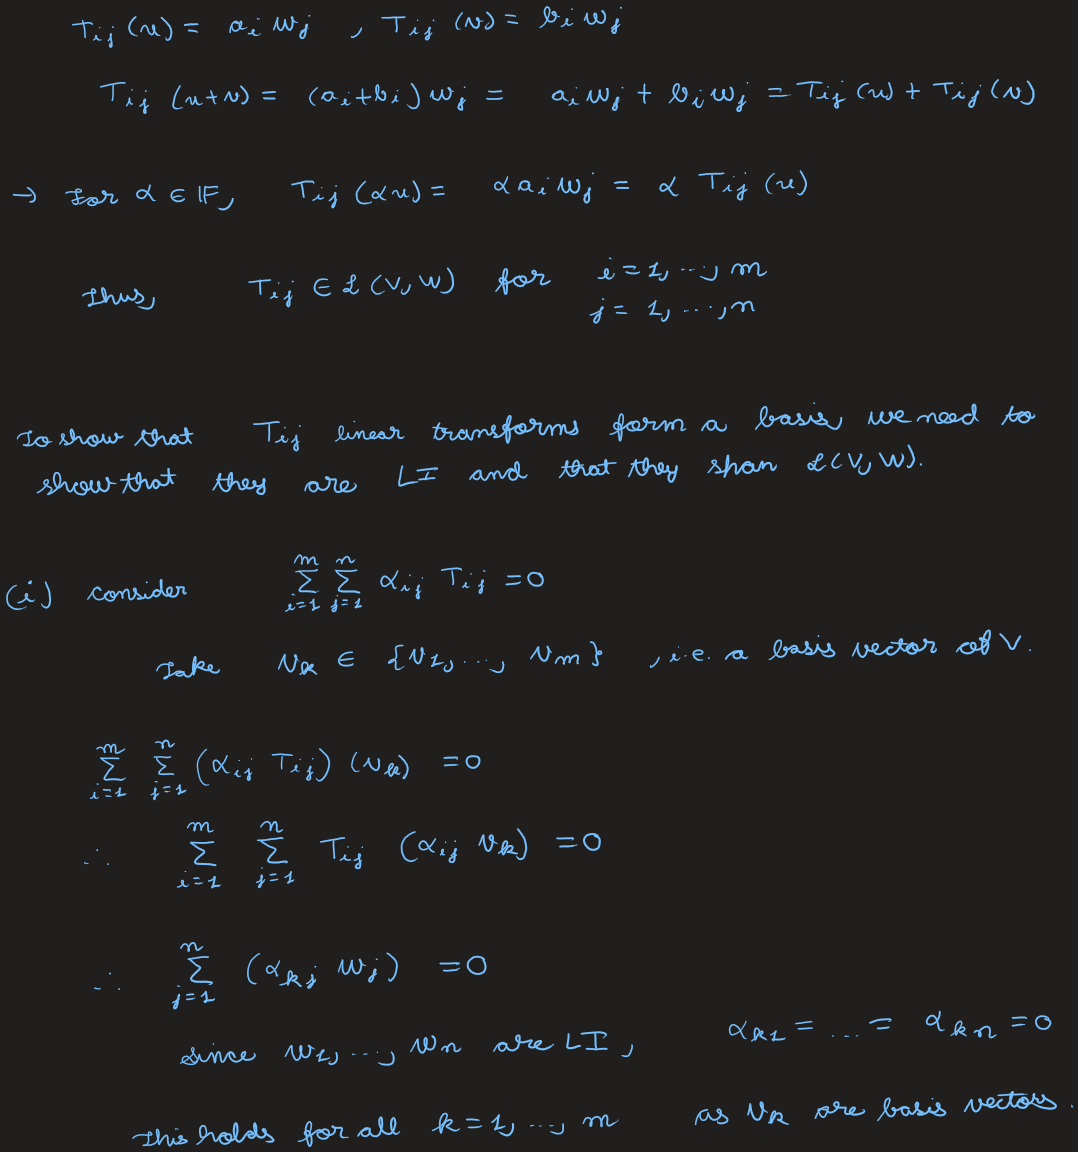 T_ij (u) = a_i w_j , T_ij (v) = b_i w_j
T_ij (u+v) = (a_i+b_i) w_j = a_i w_j + b_i w_j = T_ij (u) + T_ij (v)
→ For α ∈ 𝔽, T_ij (αu) = α a_i w_j = α T_ij (u)
Thus, T_ij ∈ ℒ(V, W) for i = 1, ..., m
j = 1, ..., n
To show that T_ij linear transforms form a basis, we need to
show that they are LI and that they span ℒ(V, W).
(i) consider ∑_{i=1}^{m} ∑_{j=1}^{n} α_ij T_ij = 0
Take v_k ∈ {v_1, ..., v_m} , i.e. a basis vector of V.
∑_{i=1}^{m} ∑_{j=1}^{n} (α_ij T_ij) (v_k) = 0
∴ ∑_{i=1}^{m} ∑_{j=1}^{n} T_ij (α_ij v_k) = 0
∴ ∑_{j=1}^{n} (α_kj w_j) = 0
since w_1, ..., w_n are LI, α_k1 = ... = α_kn = 0
This holds for all k = 1, ..., m as v_k are basis vectors.